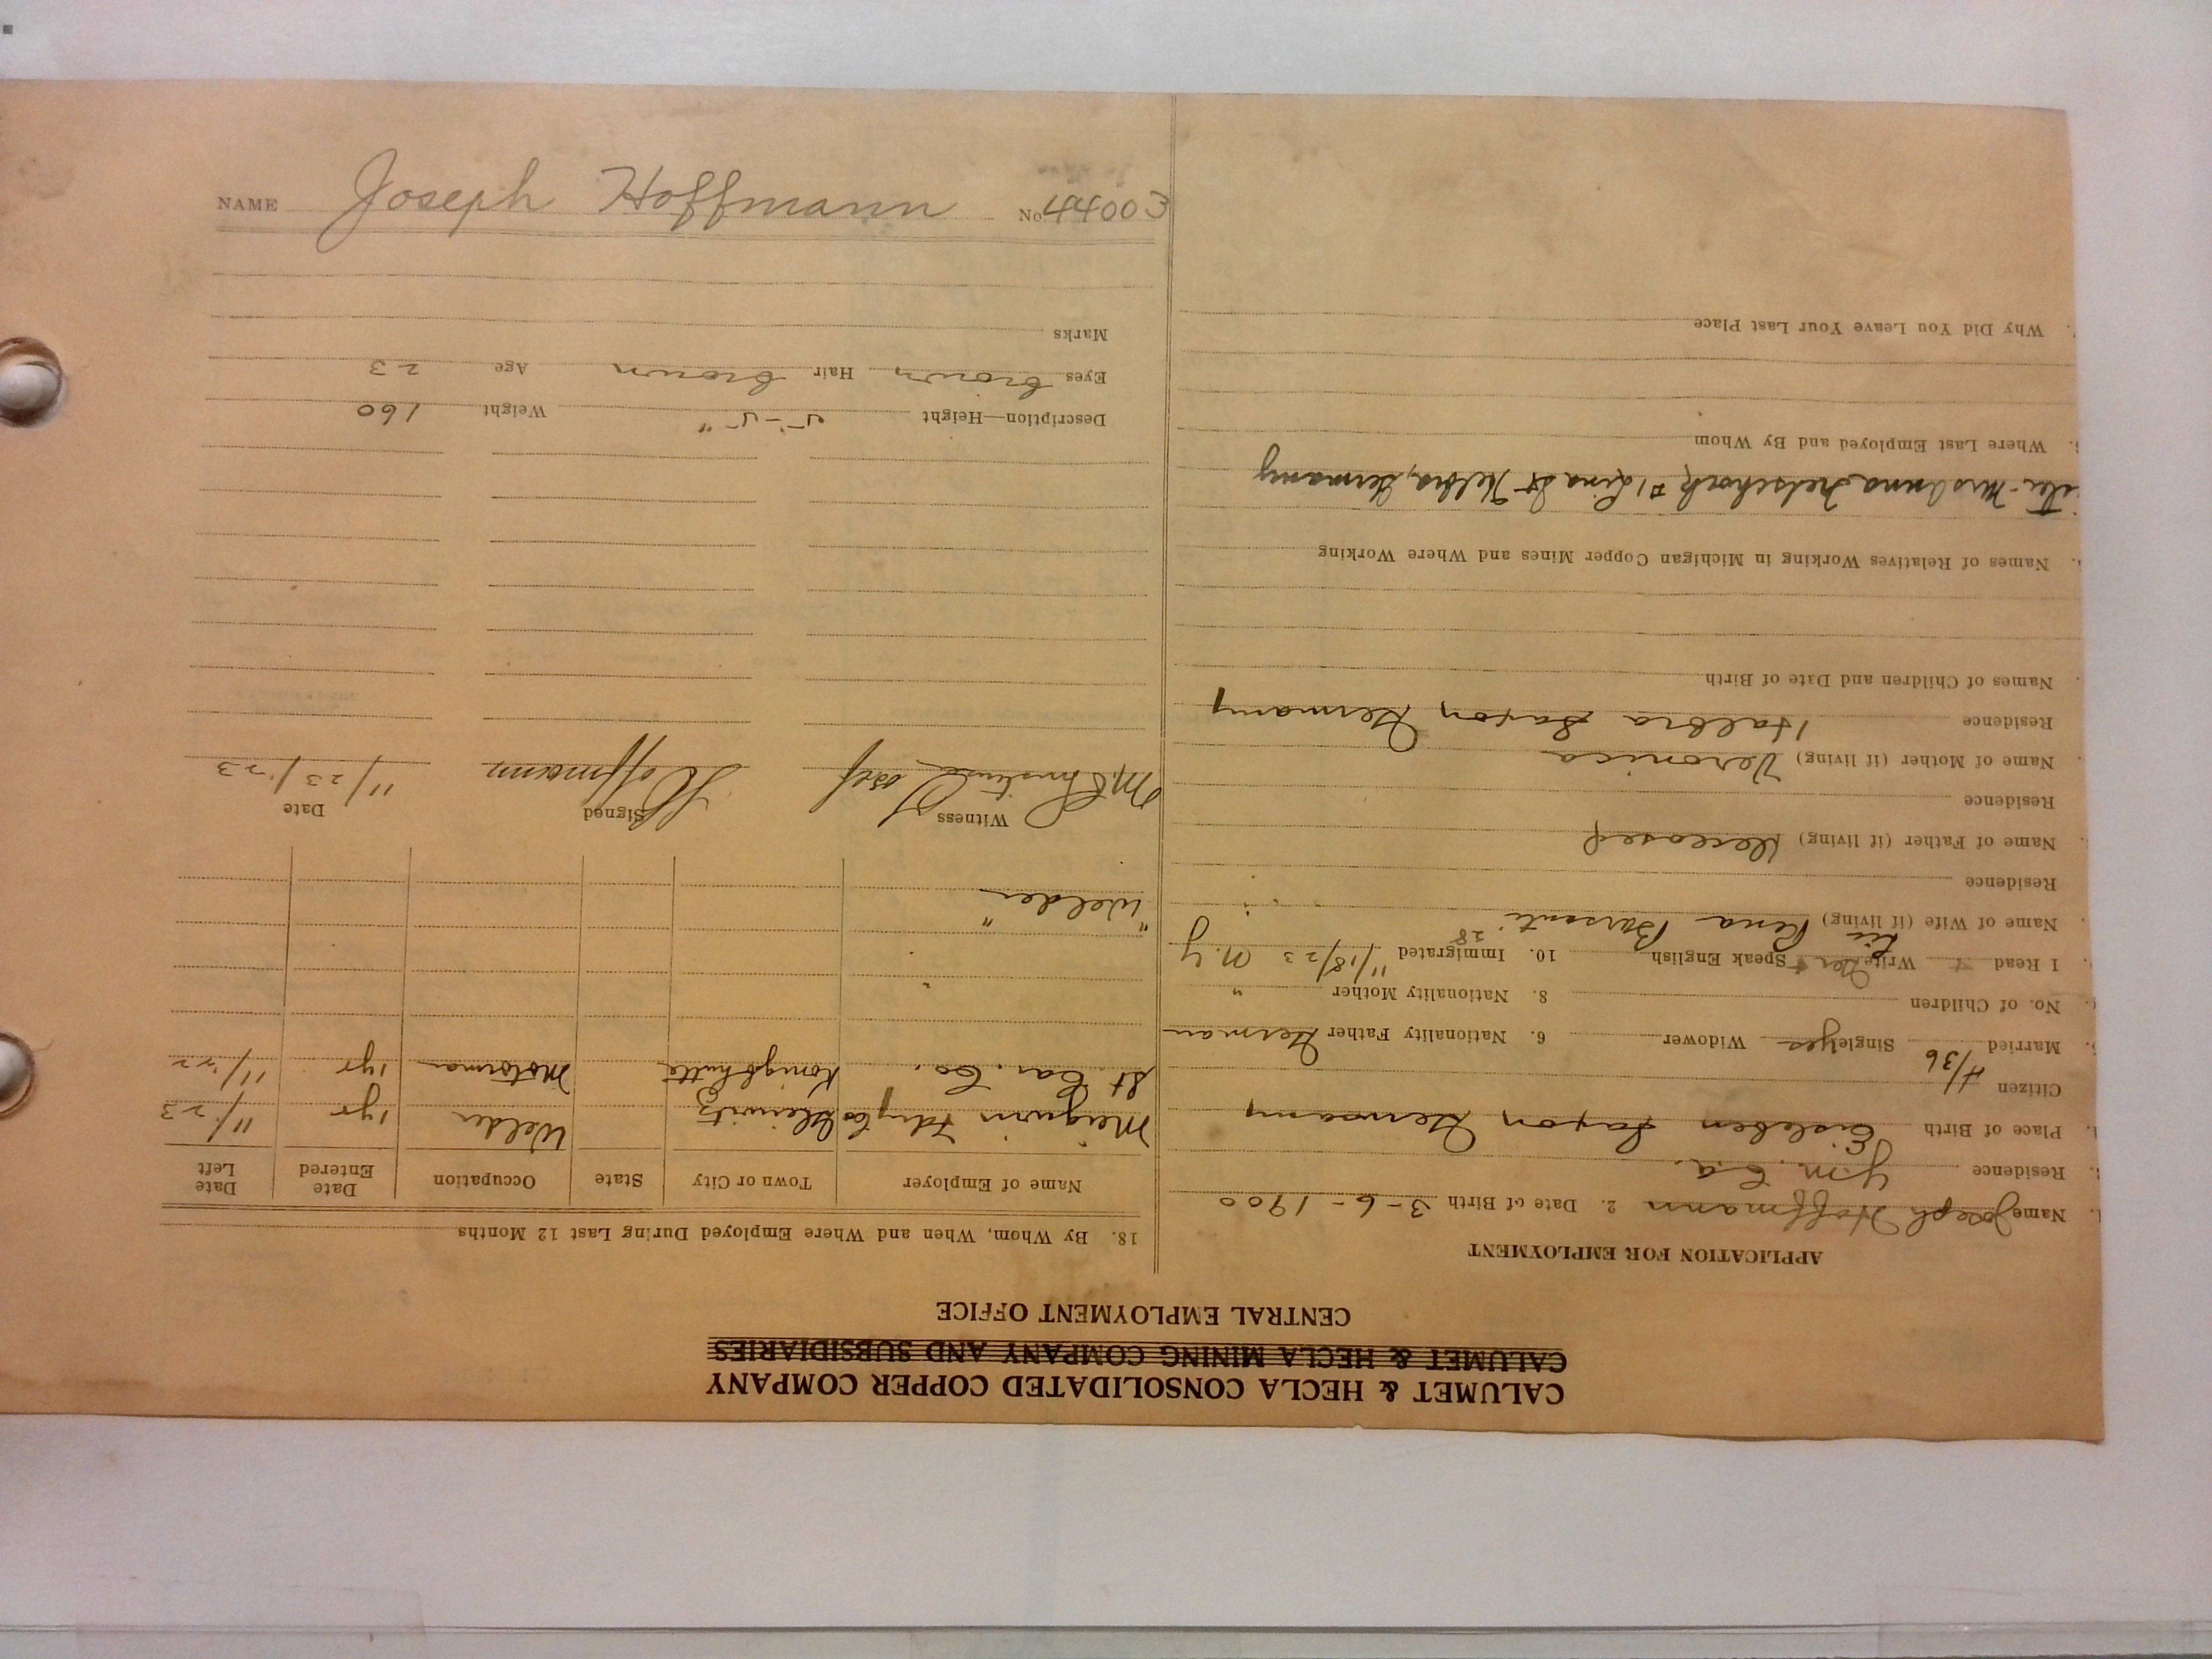 CALUMET & HECLA CONSOLIDATED COPPER COMPANY
CALUMET & HECLA MINING COMPANY AND SUBSIDIARIES
CENTRAL EMPLOYMENT OFFICE
APPLICATION FOR EMPLOYMENT
Name Joseph Hoffmann 2. Date of Birth 3-6-1900
Residence Y.M.C.A.
Place of Birth Eisleben Saxon Germany
Citizen 4/36
Married Single yes Widower 6. Nationality Father German
No. of Children 8. Nationality Mother "
I Read Write Ger Speak English 10. Immigrated 11/18/23 N.Y
28
Name of Wife (if living) Rena Barsanti
Residence
Name of Father (if living) Deceased
Residence
Name of Mother (if living) Veronica
Residence Halbra Saxon Germany
Names of Children and Date of Birth
Names of Relatives Working in Michigan Copper Mines and Where Working
Mrs Anna #1 St Helbra, Germany
Where Last Employed and By Whom
Why Did You Leave Your Last Place
18. By Whom, When and Where Employed During Last 12 Months
Name of Employer Town or City State Occupation Date Entered Date Left
Meguin Fdry Co Gleiwitz Welder 1yr 11/23
St. Car. Co. Konigshutte Motorman 1yr 11/22
" " Welder
Witness Signed Date
Josef Hoffmann 11/23/23
Description—Height 5'-5" Weight 160
Eyes brown Hair brown Age 23
Marks
NAME Joseph Hoffmann No. 44003